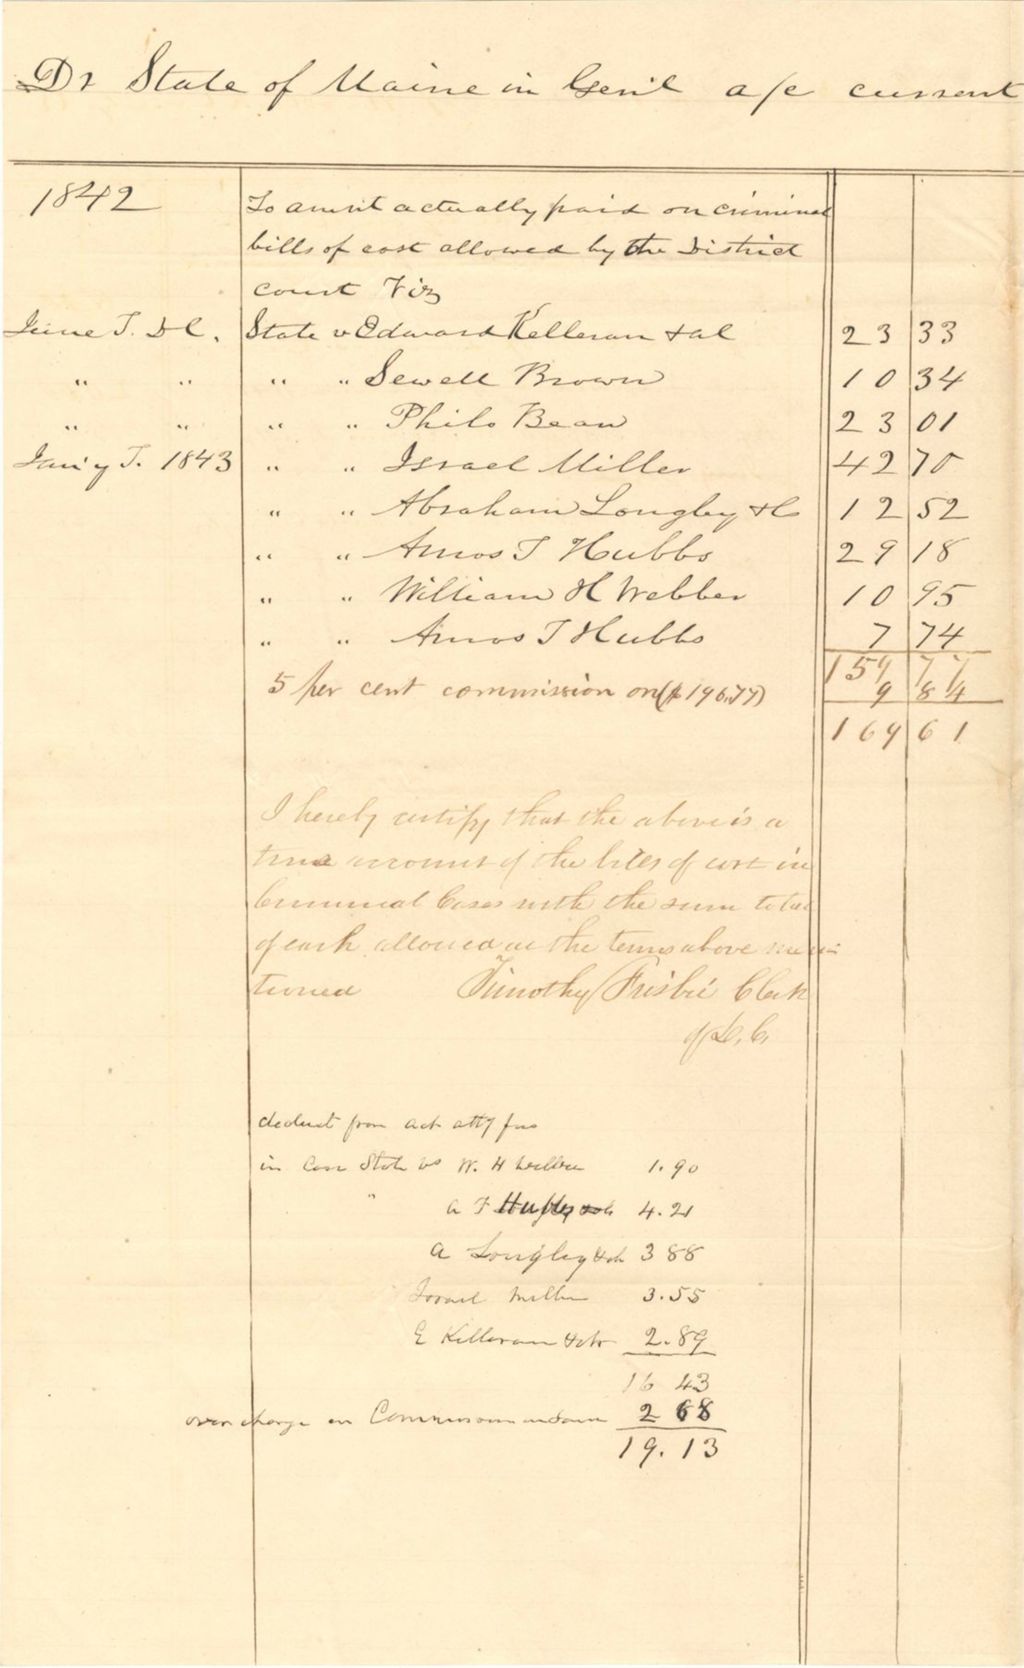 Dr State of Maine in Genl a/c current
1842 To amnt actually paid on criminal
bills of cost allowed by the District
court Viz
June T. D C. State v Edward Kelleran & al 23 33
" " " " Sewell Brown 10 34
" " " " Philo Bean 23 01
Jan'y T. 1843 " " Israel Miller 42 70
" " Abraham Longley & 12 52
" " Amos T Hubbs 29 18
" " William H Webber 10 95
" " Amos T Hubbs 7 74
159 77
5 per cent commission on ($196.77) 9 84
169 61
I hereby certify that the above is a
true account of the bills of cost in
Criminal Cases with the sum total
of each allowed at the terms above men
tioned Timothy Frisbie Clerk
of D. C.
deduct from act atty fees
in Case State vs W. H Webber 1.90
" A T 4.21
A Longley & 3 88
Israel Miller 3.55
E Kelleran & 2.89
16 43
over charge on Commission 2 68
19.13